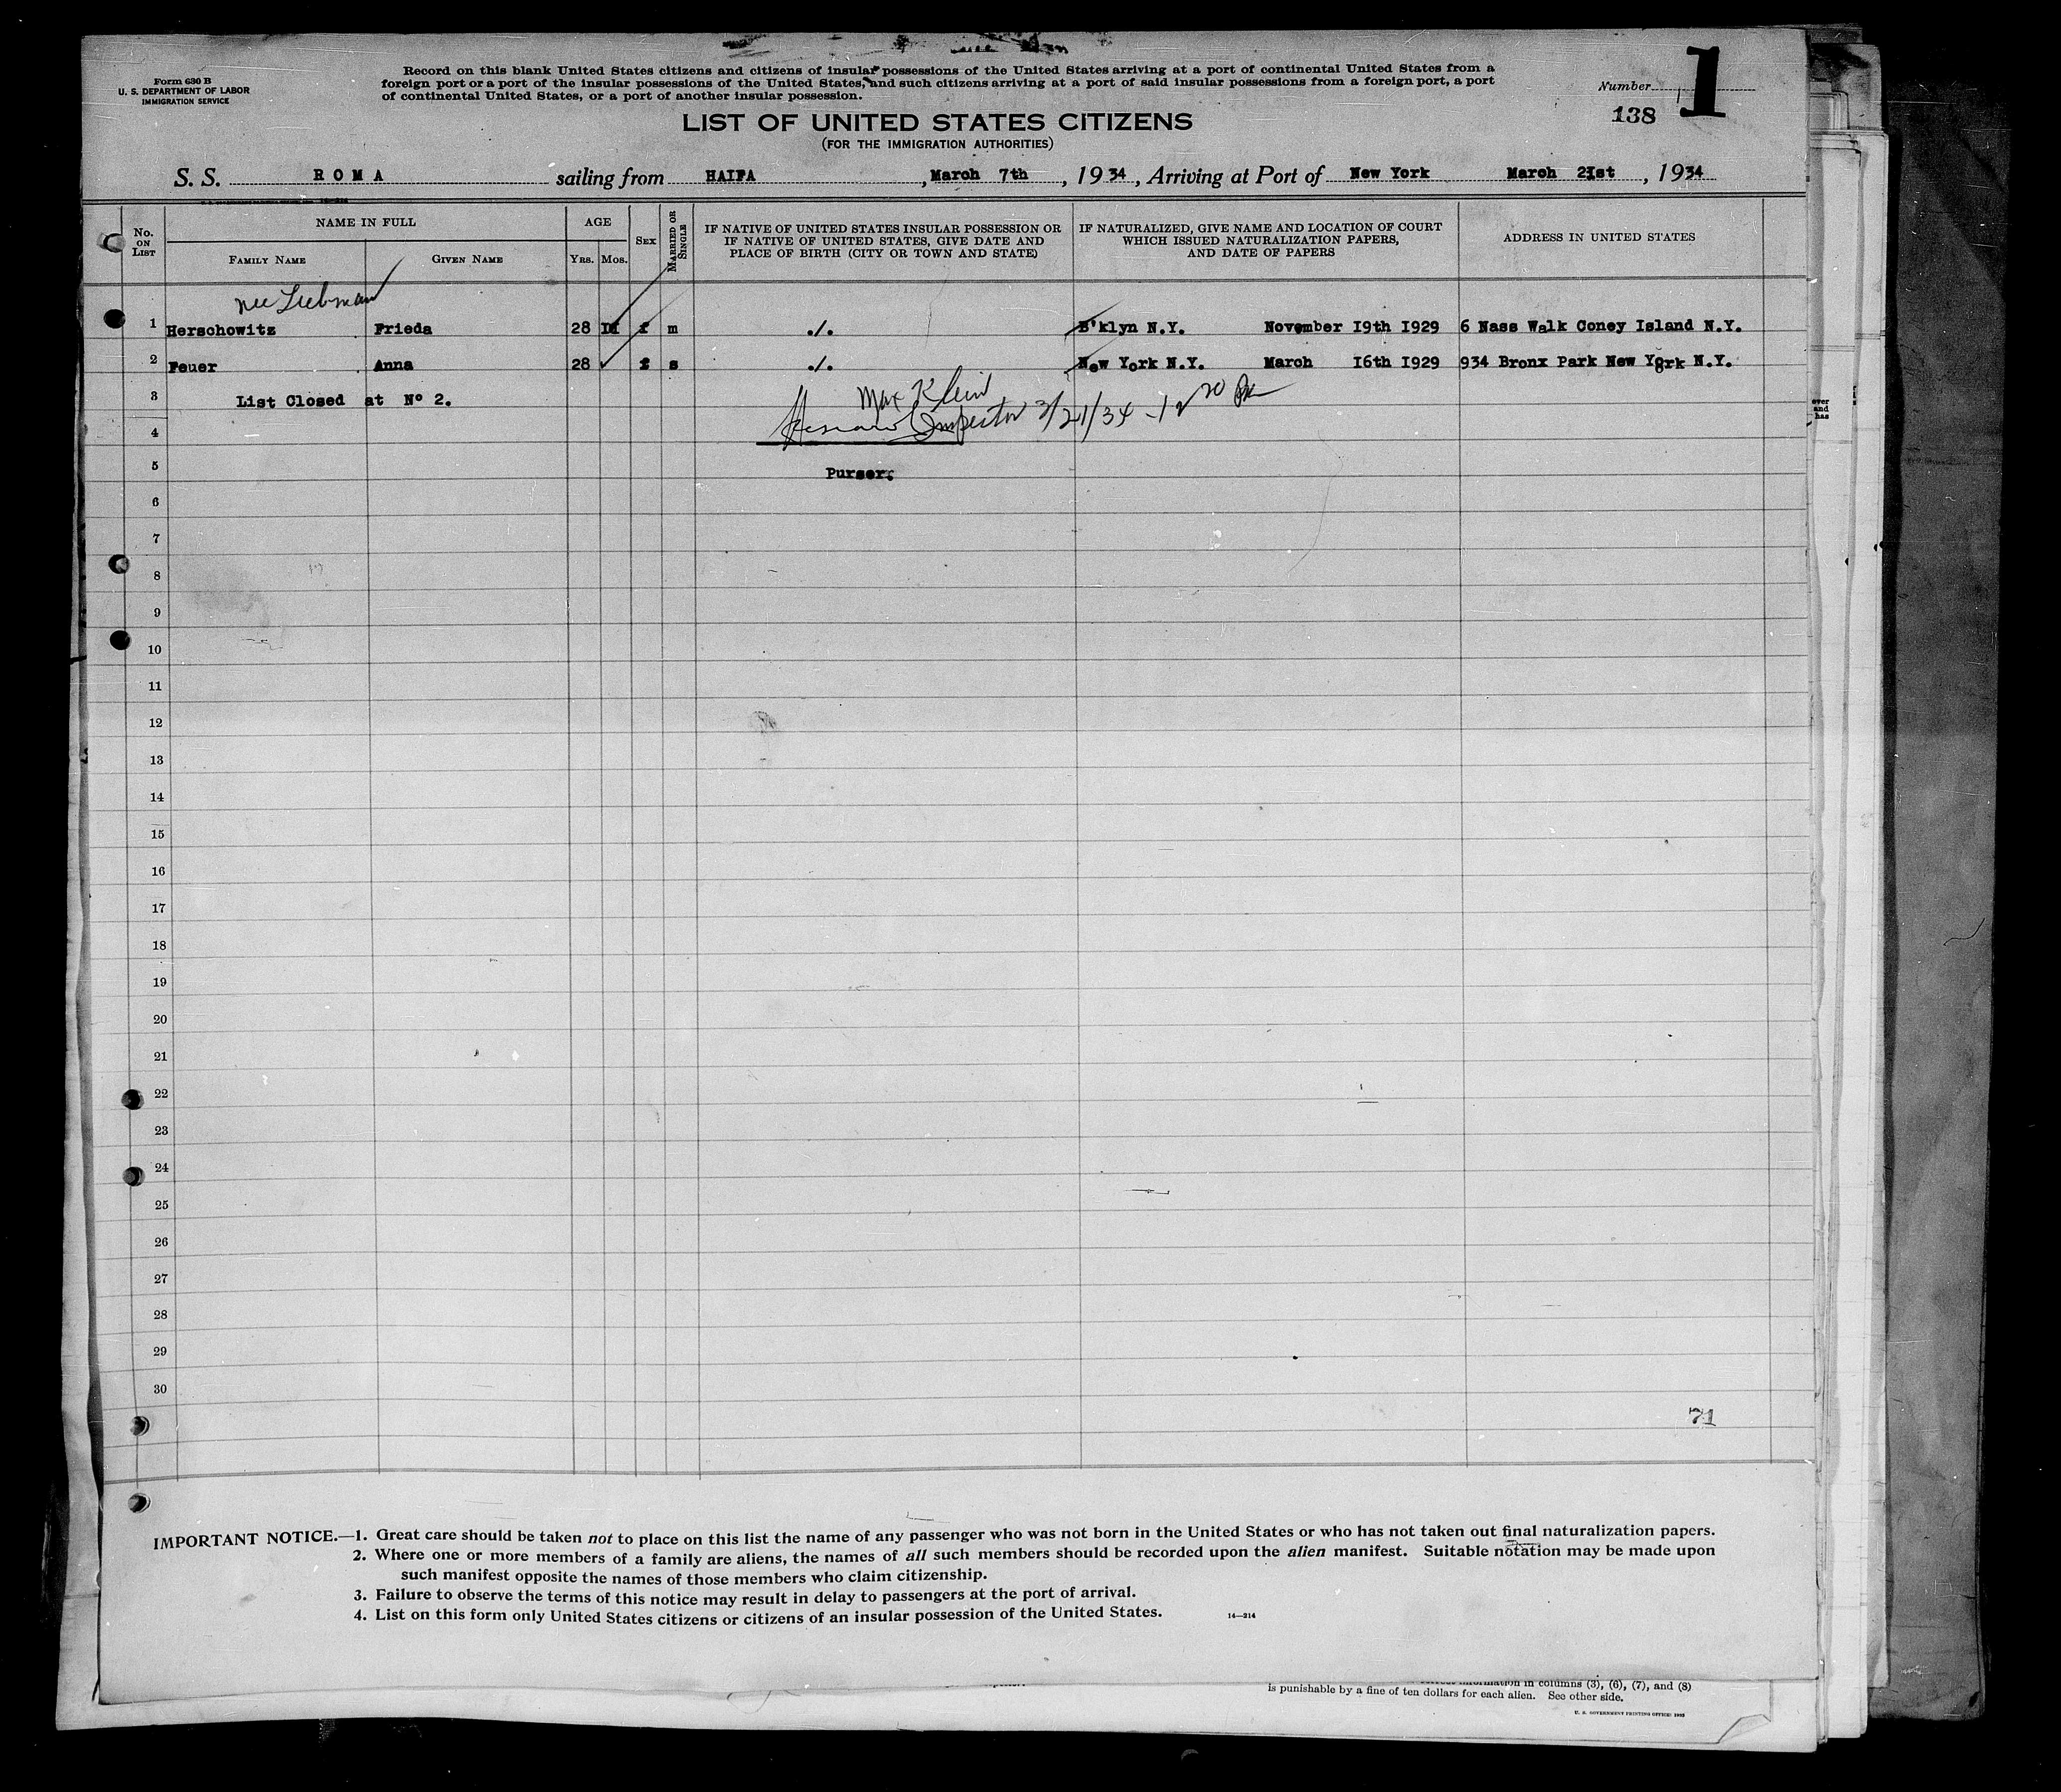 Form 630 B
U. S. DEPARTMENT OF LABOR
IMMIGRATION SERVICE
Record on this blank United States citizens and citizens of insular possessions of the United States arriving at a port of continental United States from a
foreign port or a port of the insular possessions of the United States, and such citizens arriving at a port of said insular possessions from a foreign port, a port
of continental United States, or a port of another insular possession.
Number 1
138
LIST OF UNITED STATES CITIZENS
(FOR THE IMMIGRATION AUTHORITIES)
S. S. ROMA sailing from HAIFA, March 7th, 1934, Arriving at Port of New York March 2Ist, 1934
No. ON LIST
NAME IN FULL
FAMILY NAME
GIVEN NAME
AGE
YRS. MOS.
SEX
MARRIED OR SINGLE
IF NATIVE OF UNITED STATES INSULAR POSSESSION OR
IF NATIVE OF UNITED STATES, GIVE DATE AND
PLACE OF BIRTH (CITY OR TOWN AND STATE)
IF NATURALIZED, GIVE NAME AND LOCATION OF COURT
WHICH ISSUED NATURALIZATION PAPERS,
AND DATE OF PAPERS
ADDRESS IN UNITED STATES
nee Liebman
1 Herschowitz Frieda 28 f m ./. B'klyn N.Y. November I9th I929 6 Nass Walk Coney Island N.Y.
2 Feuer Anna 28 f s ./. New York N.Y. March I6th I929 934 Bronx Park New York N.Y.
3 List Closed at Nº 2.
Max Klein
4 Inspector 3/21/34
5 Purser.
6
7
8
9
10
11
12
13
14
15
16
17
18
19
20
21
22
23
24
25
26
27
28
29
30
71
IMPORTANT NOTICE.—1. Great care should be taken not to place on this list the name of any passenger who was not born in the United States or who has not taken out final naturalization papers.
2. Where one or more members of a family are aliens, the names of all such members should be recorded upon the alien manifest. Suitable notation may be made upon
such manifest opposite the names of those members who claim citizenship.
3. Failure to observe the terms of this notice may result in delay to passengers at the port of arrival.
4. List on this form only United States citizens or citizens of an insular possession of the United States. 14—214
information in columns (3), (6), (7), and (8)
is punishable by a fine of ten dollars for each alien. See other side.
U. S. GOVERNMENT PRINTING OFFICE: 1933
ever
and
has